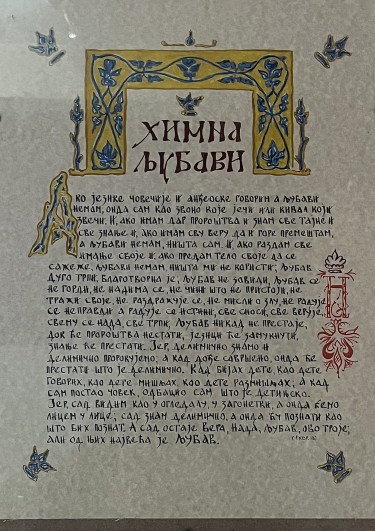 ХИМНА
ЉУБАВИ
Ако језике човечије и анђеоске говорим а љубави
немам, онда сам као звоно које јечи или кимвал који
звечи. И, ако имам дар пророштва и знам све тајне и
све знање и, ако имам сву веру да и горе премештам,
а љубави немам, ништа сам. И ако раздам све
имање своје и, ако предам тело своје да се
сажеже, љубави немам ништа ми не користи; љубав
дуго трпи, благотворна је, љубав не завиди, љубав се
не горди, не надима се, не чини што не пристоји, не
тражи своје, не раздражује се, не мисли о злу, не радује
се неправди а радује се истини, све сноси, све верује,
свему се нада, све трпи, љубав никад не престаје,
док ће пророштва нестати, језици ће замукнути,
знање ће престати. Јер, делимично знамо и
делимично пророкујемо, а кад дође савршено, онда ће
престати што је делимично. Кад бијах дете, као дете
говорих, као дете мишљах, као дете размишљах; а кад
сам постао човек, одбацио сам што је детињско.
Јер, сад видим као у огледалу, у загонетки, а онда ћемо
лицем у лице; сад знам делимично, а онда ћу познати као
што бих познат. А сад остаје вера, нада, љубав, ово троје;
али од њих највећа је љубав.